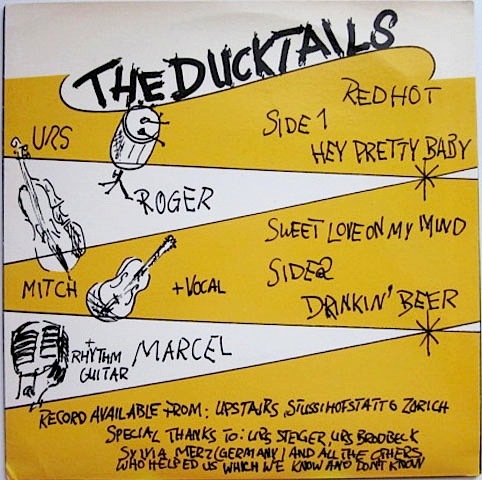 THE DUCKTAILS
RED HOT
SIDE 1
HEY PRETTY BABY
URS
ROGER
SWEET LOVE ON MY MIND
MITCH
+ VOCAL
SIDE 2
DRINKIN' BEER
+ RHYTHM
GUITAR
MARCEL
RECORD AVAILABLE FROM: UPSTAIRS, STÜSSIHOFSTATT 6 ZÜRICH
SPECIAL THANKS TO: URS STEIGER, URS BRODBECK
SYLVIA MERZ (GERMANY) AND ALL THE OTHERS,
WHO HELPED US WHICH WE KNOW AND DON'T KNOW